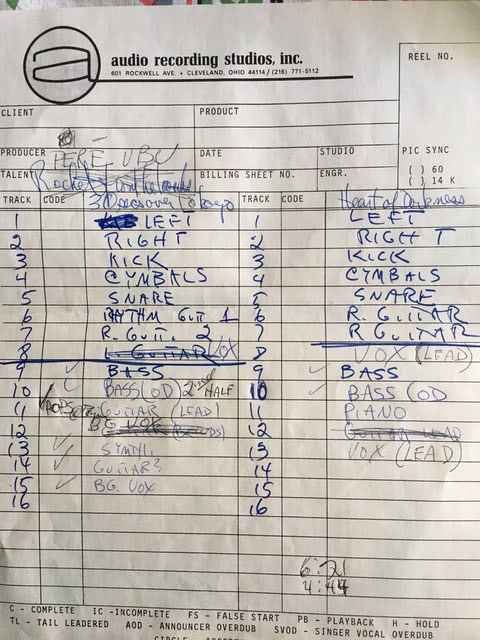 a audio recording studios, inc.
601 ROCKWELL AVE. • CLEVELAND, OHIO 44114 / (216) 771-5112
REEL NO.
CLIENT PRODUCT
PRODUCER PERE UBU DATE STUDIO PIC SYNC
( ) 60
TALENT BILLING SHEET NO. ENGR. ( ) 14 K
30 Seconds over Tokyo Heart of Darkness
TRACK CODE TRACK CODE
1 LEFT 1 LEFT
2 RIGHT 2 RIGHT
3 KICK 3 KICK
4 CYMBALS 4 CYMBALS
5 SNARE 5 SNARE
6 RHYTHM GUIT 1 6 R. GUITAR
7 R. GUIT. 2 7 R GUITAR
8 GUITAR VOX 8 VOX (LEAD)
9 ✓ BASS 9 ✓ BASS
10 ✓ BASS (OD) 2nd HALF 10 ✓ BASS (OD
11 GUITAR (LEAD) 11 PIANO
12 BG VOX 12 GUITAR LEAD
13 ✓ SYNTH. 13 VOX (LEAD)
14 ✓ GUITAR 3 14
15 ✓ BG. VOX 15
16 16
6:21
4:44
C - COMPLETE IC - INCOMPLETE FS - FALSE START PB - PLAYBACK H - HOLD
TL - TAIL LEADERED AOD - ANNOUNCER OVERDUB SVOD - SINGER VOCAL OVERDUB